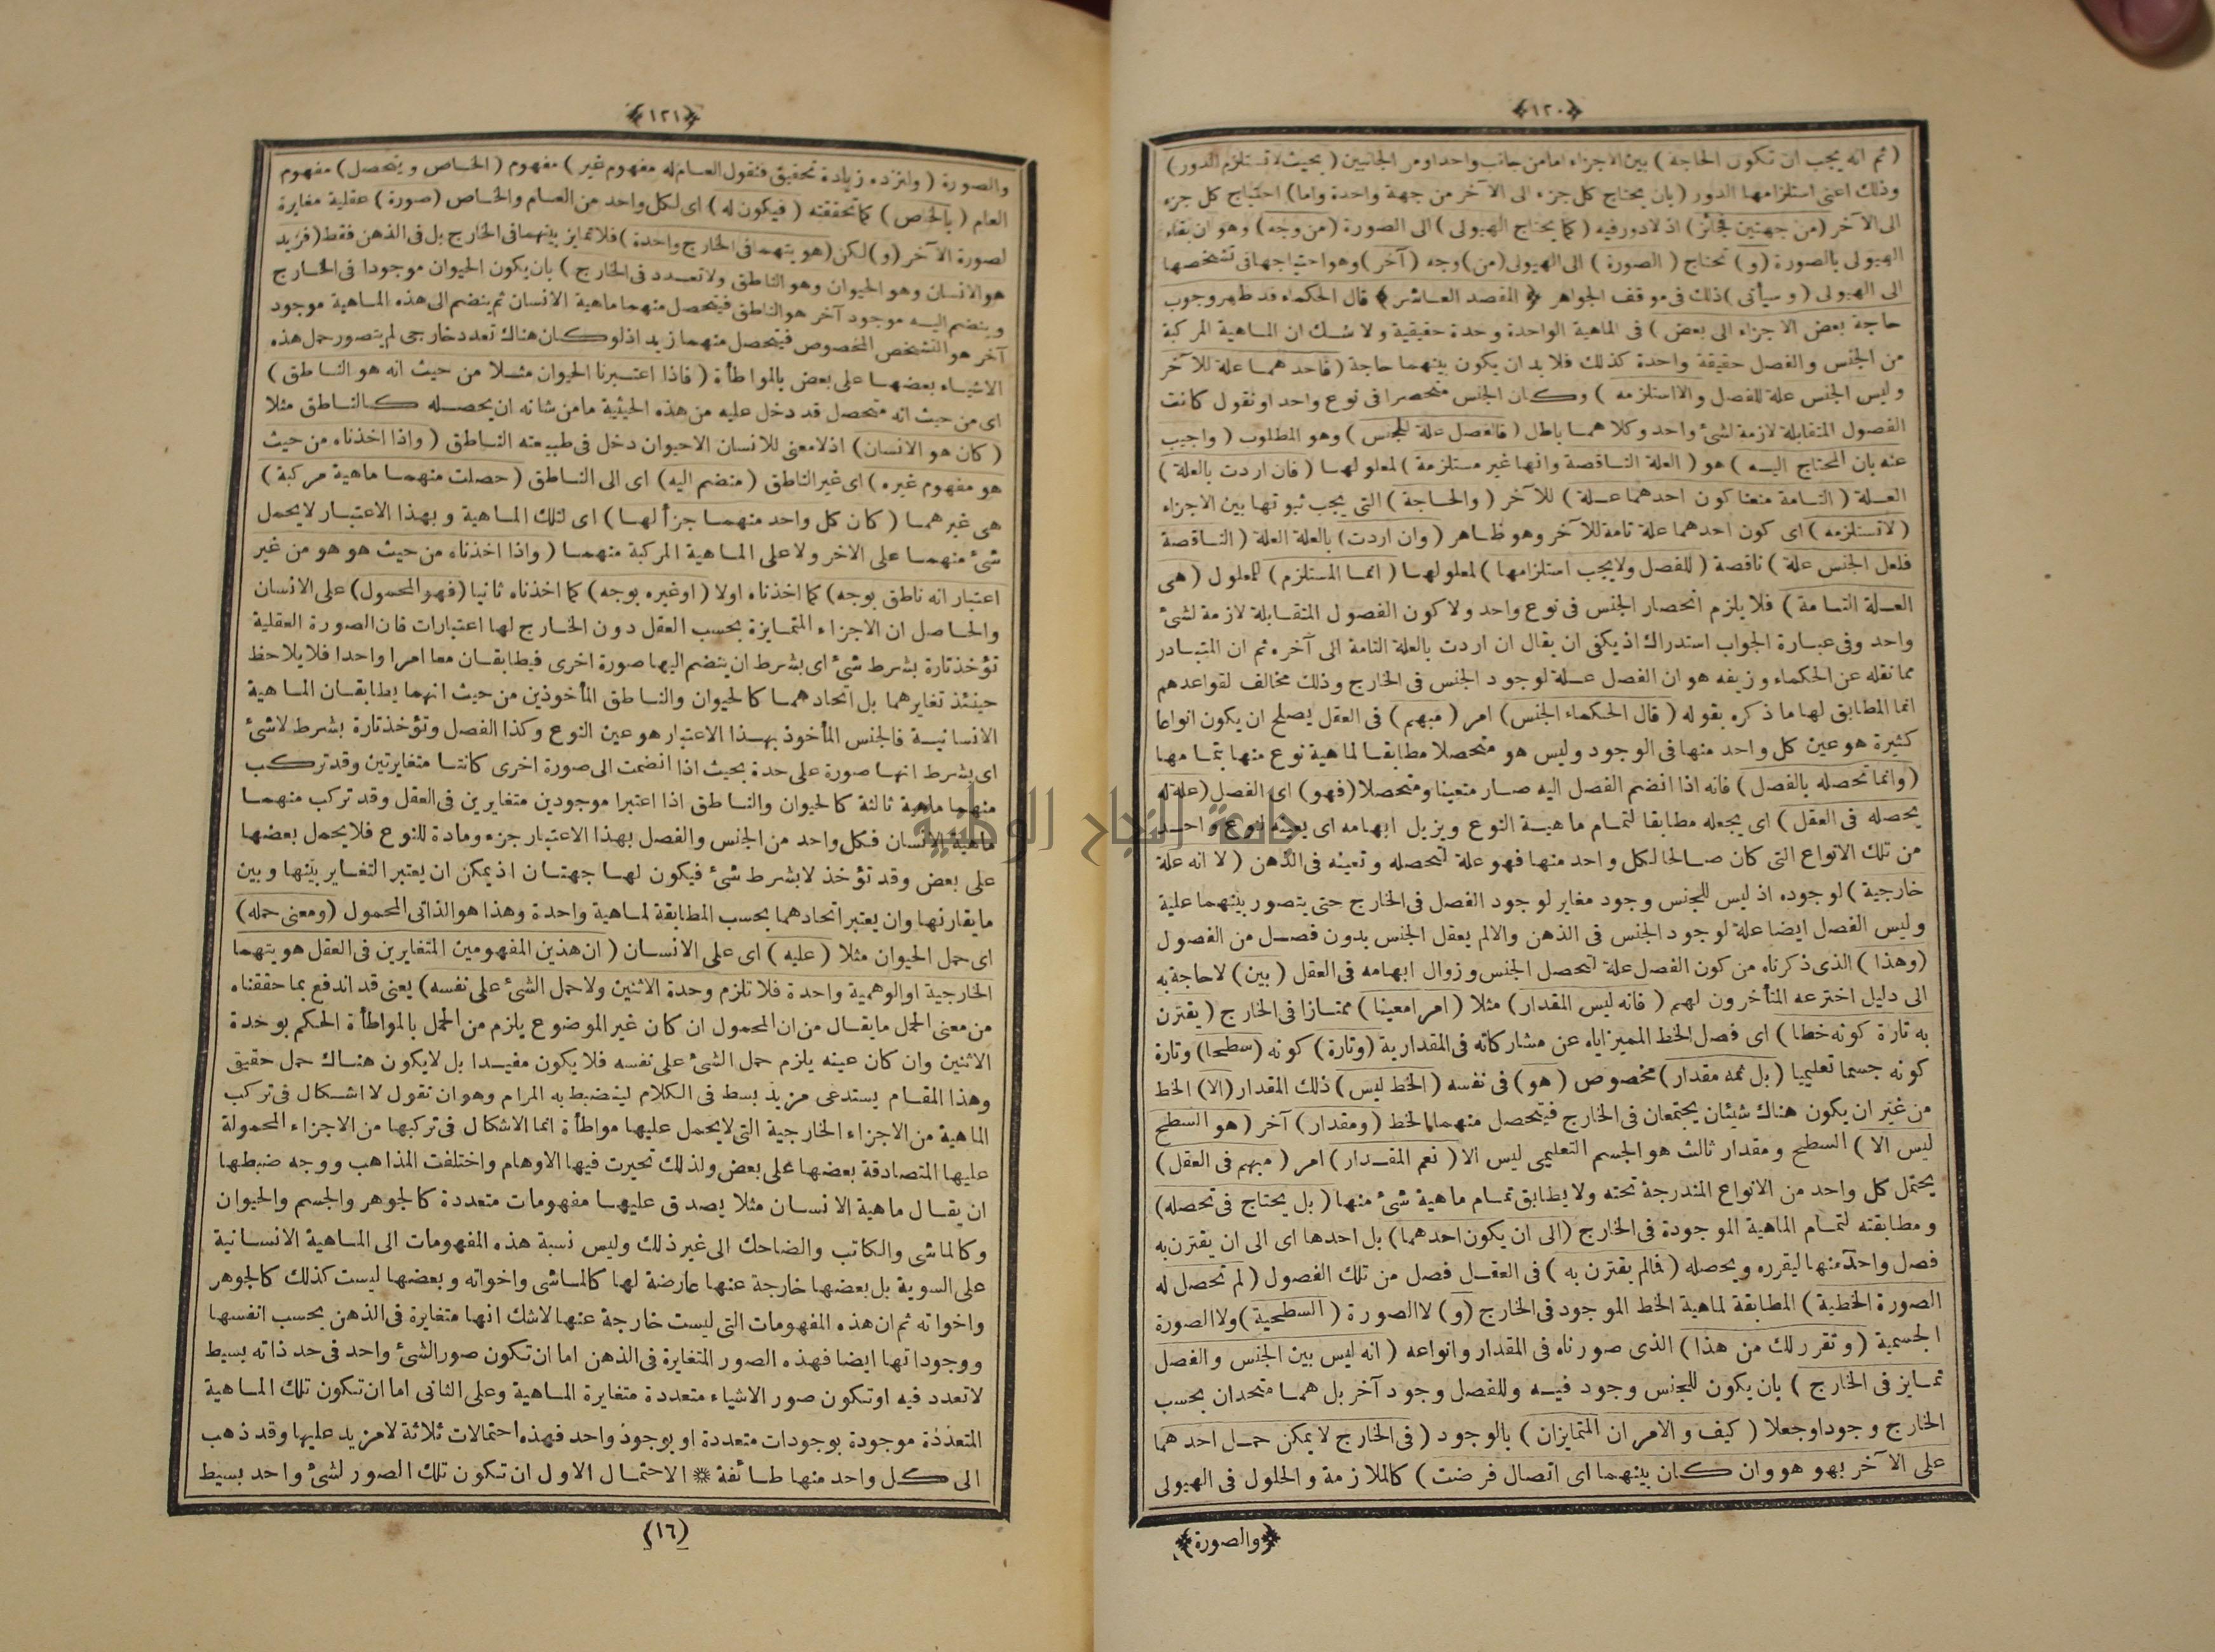 ﴿١٢٠﴾
(ثم انه يجب ان تكون الحاجة) بين الاجزاء اما من جانب واحد او من الجانبين (بحيث لا تستلزم الدور)
وذلك اعنى استلزامها الدور (بان يحتاج كل جزء الى الآخر من جهة واحدة واما) احتياج كل جزء
الى الآخر (من جهتين فجائز) اذ لا دور فيه (كما يحتاج الهيولى) الى الصورة (من وجه) وهو ان بقاء
الهيولى بالصورة (و) تحتاج (الصورة) الى الهيولى (من) وجه (آخر) وهو احتياجها فى تشخصها
الى الهيولى (وسيأتى) ذلك فى موقف الجواهر ﴿المقصد العاشر﴾ قال الحكماء قد ظهر وجوب
حاجة بعض الاجزاء الى بعض) فى الماهية الواحدة وحدة حقيقية ولا شك ان الماهية المركبة
من الجنس والفصل حقيقة واحدة كذلك فلا بد ان يكون بينهما حاجة (فاحدهما علة للآخر
وليس الجنس علة للفصل والا استلزمه) وكان الجنس منحصرا فى نوع واحد او نقول كانت
الفصول المتقابلة لازمة لشئ واحد وكلاهما باطل (فالفصل علة للجنس) وهو المطلوب (واجيب
عنه بان المحتاج اليه) هو (العلة الناقصة وانها غير مستلزمة) لمعلولها (فان اردت بالعلة)
العلة (التامة منعنا كون احدهما علة) للآخر (والحاجة) التى يجب ثبوتها بين الاجزاء
(لا تستلزمه) اى كون احدهما علة تامة للآخر وهو ظاهر (وان اردت) بالعلة العلة (الناقصة
فلعل الجنس علة) ناقصة (للفصل ولا يجب استلزامها) لمعلولها (انما المستلزم) للمعلول (هى
العلة التامة) فلا يلزم انحصار الجنس فى نوع واحد ولا كون الفصول المتقابلة لازمة لشئ
واحد وفى عبارة الجواب استدراك اذ يكفى ان يقال ان اردت بالعلة التامة الى آخره ثم ان المتبادر
مما نقله عن الحكماء وزيفه هو ان الفصل علة لوجود الجنس فى الخارج وذلك مخالف لقواعدهم
انما المطابق لها ما ذكره بقوله (قال الحكماء الجنس) امر (مبهم) فى العقل يصلح ان يكون انواعا
كثيرة هو عين كل واحد منها فى الوجود وليس هو متحصلا مطابقا لماهية نوع منها بتمامها
(وانما تحصله بالفصل) فانه اذا انضم الفصل اليه صار متعينا ومتحصلا (فهو) اى الفصل (علة له
يحصله فى العقل) اى يجعله مطابقا لتمام ماهية النوع ويزيل ابهامه اى يعينه لنوع واحد
من تلك الانواع التى كان صالحا لكل واحد منها فهو علة لتحصله وتعينه فى الذهن (لا انه علة
خارجية) لوجوده اذ ليس للجنس وجود مغاير لوجود الفصل فى الخارج حتى يتصور بينهما علية
وليس الفصل ايضا علة لوجود الجنس فى الذهن والا لم يعقل الجنس بدون فصل من الفصول
(وهذا) الذى ذكرناه من كون الفصل علة لتحصل الجنس وزوال ابهامه فى العقل (بين) لا حاجة به
الى دليل اخترعه المتأخرون لهم (فانه ليس المقدار) مثلا (امرا معينا) ممتازا فى الخارج (يقترن
به تارة كونه خطا) اى فصل الخط المميز اياه عن مشاركاته فى المقدارية (وتارة) كونه (سطحا) وتارة
كونه جسما تعليميا (بل ثمه مقدار) مخصوص (هو) فى نفسه (الخط ليس) ذلك المقدار (الا) الخط
من غير ان يكون هناك شيئان يجتمعان فى الخارج فيتحصل منهما الخط (ومقدار) آخر (هو السطح
ليس الا) السطح ومقدار ثالث هو الجسم التعليمى ليس الا (نعم المقدار) امر (مبهم فى العقل)
يحتمل كل واحد من الانواع المندرجة تحته ولا يطابق تمام ماهية شئ منها (بل يحتاج فى تحصله)
ومطابقته لتمام الماهية الموجودة فى الخارج (الى ان يكون احدهما) بل احدها اى الى ان يقترن به
فصل واحد منها ليقرره ويحصله (فالم يقترن به) فى العقل فصل من تلك الفصول (لم تحصل له
الصورة الخطية) المطابقة لماهية الخط الموجود فى الخارج (و) لا الصورة (السطحية) ولا الصورة
الجسمية (وتقرر لك من هذا) الذى صورناه فى المقدار وانواعه (انه ليس بين الجنس والفصل
تمايز فى الخارج) بان يكون للجنس وجود فيه وللفصل وجود آخر بل هما متحدان بحسب
الخارج وجودا وجعلا (كيف والامران المتمايزان) بالوجود (فى الخارج لا يمكن حمل احدهما
على الآخر بهو هو وان كان بينهما اى اتصال فرضت) كالملازمة والحلول فى الهيولى
﴿والصورة﴾
﴿١٢١﴾
والصورة (ولنزده زيادة تحقيق فنقول العام له مفهوم غير) مفهوم (الخاص ويتحصل) مفهوم
العام (بالخاص) كما تحققته (فيكون له) اى لكل واحد من العام والخاص (صورة) عقلية مغايرة
لصورة الآخر (و) لكن (هويتهما فى الخارج واحدة) فلا تمايز بينهما فى الخارج بل فى الذهن فقط (فزيد
هو الانسان وهو الحيوان وهو الناطق ولا تعدد فى الخارج) بان يكون الحيوان موجودا فى الخارج
وينضم اليه موجود آخر هو الناطق فيتحصل منهما ماهية الانسان ثم ينضم الى هذه الماهية موجود
آخر هو التشخص المخصوص فيتحصل منهما زيد اذ لو كان هناك تعدد خارجى لم يتصور حمل هذه
الاشياء بعضها على بعض بالمواطأة (فاذا اعتبرنا الحيوان مثلا من حيث انه هو الناطق)
اى من حيث انه متحصل قد دخل عليه من هذه الحيثية ما من شانه ان يحصله كالناطق مثلا
(كان هو الانسان) اذ لا معنى للانسان الا حيوان دخل فى طبيعته الناطق (واذا اخذناه من حيث
هو مفهوم غيره) اى غير الناطق (منضم اليه) اى الى الناطق (حصلت منهما ماهية مركبة)
هى غيرهما (كان كل واحد منهما جزأ لها) اى لتلك الماهية وبهذا الاعتبار لا يحمل
شئ منهما على الاخر ولا على الماهية المركبة منهما (واذا اخذناه من حيث هو هو من غير
اعتبار انه ناطق بوجه) كما اخذناه اولا (او غيره بوجه) كما اخذناه ثانيا (فهو المحمول) على الانسان
والحاصل ان الاجزاء المتمايزة بحسب العقل دون الخارج لها اعتبارات فان الصورة العقلية
تؤخذ تارة بشرط شئ اى بشرط ان ينضم اليها صورة اخرى فيطابقان معا امرا واحدا فلا يلاحظ
حينئذ تغايرهما بل اتحادهما كالحيوان والناطق المأخوذين من حيث انهما يطابقان الماهية
الانسانية فالجنس المأخوذ بهذا الاعتبار هو عين النوع وكذا الفصل وتؤخذ تارة بشرط لا شئ
اى بشرط انها صورة على حدة بحيث اذا انضمت الى صورة اخرى كانتا متغايرتين وقد تركب
منهما ماهية ثالثة كالحيوان والناطق اذا اعتبرا موجودين متغايرين فى العقل وقد تركب منهما
ماهية الانسان فكل واحد من الجنس والفصل بهذا الاعتبار جزء ومادة للنوع فلا يحمل بعضها
على بعض وقد تؤخذ لا بشرط شئ فيكون لها جهتان اذ يمكن ان يعتبر التغاير بينها وبين
ما يقارنها وان يعتبر اتحادهما بحسب المطابقة لماهية واحدة وهذا هو الذاتى المحمول (ومعنى حمله)
اى حمل الحيوان مثلا (عليه) اى على الانسان (ان هذين المفهومين المتغايرين فى العقل هويتهما
الخارجية او الوهمية واحدة فلا تلزم وحدة الاثنين ولا حمل الشئ على نفسه) يعنى قد اندفع بما حققناه
من معنى الحمل ما يقال من ان المحمول ان كان غير الموضوع يلزم من الحمل بالمواطأة الحكم بوحدة
الاثنين وان كان عينه يلزم حمل الشئ على نفسه فلا يكون مفيدا بل لا يكون هناك حمل حقيقى
وهذا المقام يستدعى مزيد بسط فى الكلام لينضبط به المرام وهو ان نقول لا اشكال فى تركب
الماهية من الاجزاء الخارجية التى لا يحمل عليها مواطأة انما الاشكال فى تركبها من الاجزاء المحمولة
عليها المتصادقة بعضها على بعض ولذلك تحيرت فيها الاوهام واختلفت المذاهب ووجه ضبطها
ان يقال ماهية الانسان مثلا يصدق عليها مفهومات متعددة كالجوهر والجسم والحيوان
وكالماشى والكاتب والضاحك الى غير ذلك وليس نسبة هذه المفهومات الى الماهية الانسانية
على السوية بل بعضها خارجة عنها عارضة لها كالماشى واخواته وبعضها ليست كذلك كالجوهر
واخواته ثم ان هذه المفهومات التى ليست خارجة عنها لا شك انها متغايرة فى الذهن بحسب انفسها
ووجوداتها ايضا فهذه الصور المتغايرة فى الذهن اما ان تكون صور الشئ واحد فى حد ذاته بسيط
لا تعدد فيه او تكون صور الاشياء متعددة متغايرة الماهية وعلى الثانى اما ان تكون تلك الماهية
المتعددة موجودة بوجودات متعددة او بوجود واحد فهذه احتمالات ثلاثة لا مزيد عليها وقد ذهب
الى كل واحد منها طائفة * الاحتمال الاول ان تكون تلك الصور لشئ واحد بسيط
(١٦)
جامعة النجاح الوطنية